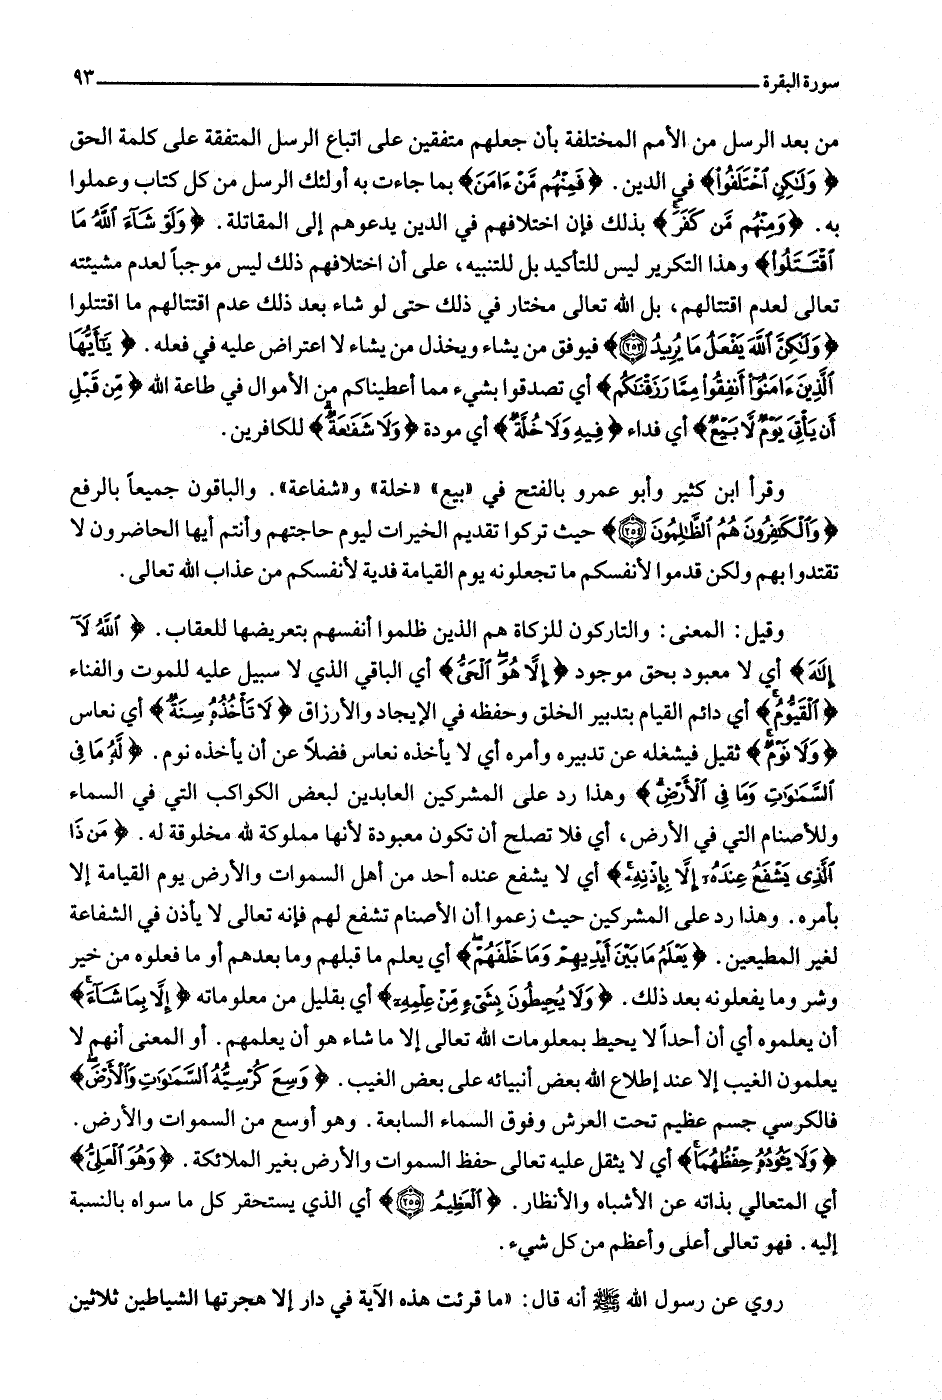 سورة البقرة ٩٣
من بعد الرسل من الأمم المختلفة بأن جعلهم متفقين على اتباع الرسل المتفقة على كلمة الحق
﴿وَلَٰكِنِ ٱخْتَلَفُوا۟﴾ في الدين. ﴿فَمِنْهُم مَّنْ ءَامَنَ﴾ بما جاءت به أولئك الرسل من كل كتاب وعملوا
به. ﴿وَمِنْهُم مَّن كَفَرَ ۚ﴾ بذلك فإن اختلافهم في الدين يدعوهم إلى المقاتلة. ﴿وَلَوْ شَآءَ ٱللَّهُ مَا
ٱقْتَتَلُوا۟﴾ وهذا التكرير ليس للتأكيد بل للتنبيه، على أن اختلافهم ذلك ليس موجباً لعدم مشيئته
تعالى لعدم اقتتالهم، بل الله تعالى مختار في ذلك حتى لو شاء بعد ذلك عدم اقتتالهم ما اقتتلوا
﴿وَلَٰكِنَّ ٱللَّهَ يَفْعَلُ مَا يُرِيدُ ٢٥٣﴾ فيوفق من يشاء ويخذل من يشاء لا اعتراض عليه في فعله. ﴿يَٰٓأَيُّهَا
ٱلَّذِينَ ءَامَنُوٓا۟ أَنفِقُوا۟ مِمَّا رَزَقْنَٰكُم﴾ أي تصدقوا بشيء مما أعطيناكم من الأموال في طاعة الله ﴿مِّن قَبْلِ
أَن يَأْتِىَ يَوْمٌ لَّا بَيْعٌ﴾ أي فداء ﴿فِيهِ وَلَا خُلَّةٌ﴾ أي مودة ﴿وَلَا شَفَٰعَةٌ ۗ﴾ للكافرين.
وقرأ ابن كثير وأبو عمرو بالفتح في «بيع» «خلة» و«شفاعة». والباقون جميعاً بالرفع
﴿وَٱلْكَٰفِرُونَ هُمُ ٱلظَّٰلِمُونَ ٢٥٤﴾ حيث تركوا تقديم الخيرات ليوم حاجتهم وأنتم أيها الحاضرون لا
تقتدوا بهم ولكن قدموا لأنفسكم ما تجعلونه يوم القيامة فدية لأنفسكم من عذاب الله تعالى.
وقيل: المعنى: والتاركون للزكاة هم الذين ظلموا أنفسهم بتعريضها للعقاب. ﴿ٱللَّهُ لَآ
إِلَٰهَ﴾ أي لا معبود بحق موجود ﴿إِلَّا هُوَ ۖ ٱلْحَىُّ﴾ أي الباقي الذي لا سبيل عليه للموت والفناء
﴿ٱلْقَيُّومُ ۚ﴾ أي دائم القيام بتدبير الخلق وحفظه في الإيجاد والأرزاق ﴿لَا تَأْخُذُهُۥ سِنَةٌ﴾ أي نعاس
﴿وَلَا نَوْمٌ ۚ﴾ ثقيل فيشغله عن تدبيره وأمره أي لا يأخذه نعاس فضلاً عن أن يأخذه نوم. ﴿لَّهُۥ مَا فِى
ٱلسَّمَٰوَٰتِ وَمَا فِى ٱلْأَرْضِ ۗ﴾ وهذا رد على المشركين العابدين لبعض الكواكب التي في السماء
وللأصنام التي في الأرض، أي فلا تصلح أن تكون معبودة لأنها مملوكة لله مخلوقة له. ﴿مَن ذَا
ٱلَّذِى يَشْفَعُ عِندَهُۥٓ إِلَّا بِإِذْنِهِۦ ۚ﴾ أي لا يشفع عنده أحد من أهل السموات والأرض يوم القيامة إلا
بأمره. وهذا رد على المشركين حيث زعموا أن الأصنام تشفع لهم فإنه تعالى لا يأذن في الشفاعة
لغير المطيعين. ﴿يَعْلَمُ مَا بَيْنَ أَيْدِيهِمْ وَمَا خَلْفَهُمْ ۖ﴾ أي يعلم ما قبلهم وما بعدهم أو ما فعلوه من خير
وشر وما يفعلونه بعد ذلك. ﴿وَلَا يُحِيطُونَ بِشَىْءٍ مِّنْ عِلْمِهِۦٓ﴾ أي بقليل من معلوماته ﴿إِلَّا بِمَا شَآءَ ۚ﴾
أن يعلموه أي أن أحداً لا يحيط بمعلومات الله تعالى إلا ما شاء هو أن يعلمهم. أو المعنى أنهم لا
يعلمون الغيب إلا عند إطلاع الله بعض أنبيائه على بعض الغيب. ﴿وَسِعَ كُرْسِيُّهُ ٱلسَّمَٰوَٰتِ وَٱلْأَرْضَ ۖ﴾
فالكرسي جسم عظيم تحت العرش وفوق السماء السابعة. وهو أوسع من السموات والأرض.
﴿وَلَا يَـُٔودُهُۥ حِفْظُهُمَا ۚ﴾ أي لا يثقل عليه تعالى حفظ السموات والأرض بغير الملائكة. ﴿وَهُوَ ٱلْعَلِىُّ﴾
أي المتعالي بذاته عن الأشباه والأنظار. ﴿ٱلْعَظِيمُ ٢٥٥﴾ أي الذي يستحقر كل ما سواه بالنسبة
إليه. فهو تعالى أعلى وأعظم من كل شيء.
روي عن رسول الله ﷺ أنه قال: «ما قرئت هذه الآية في دار إلا هجرتها الشياطين ثلاثين